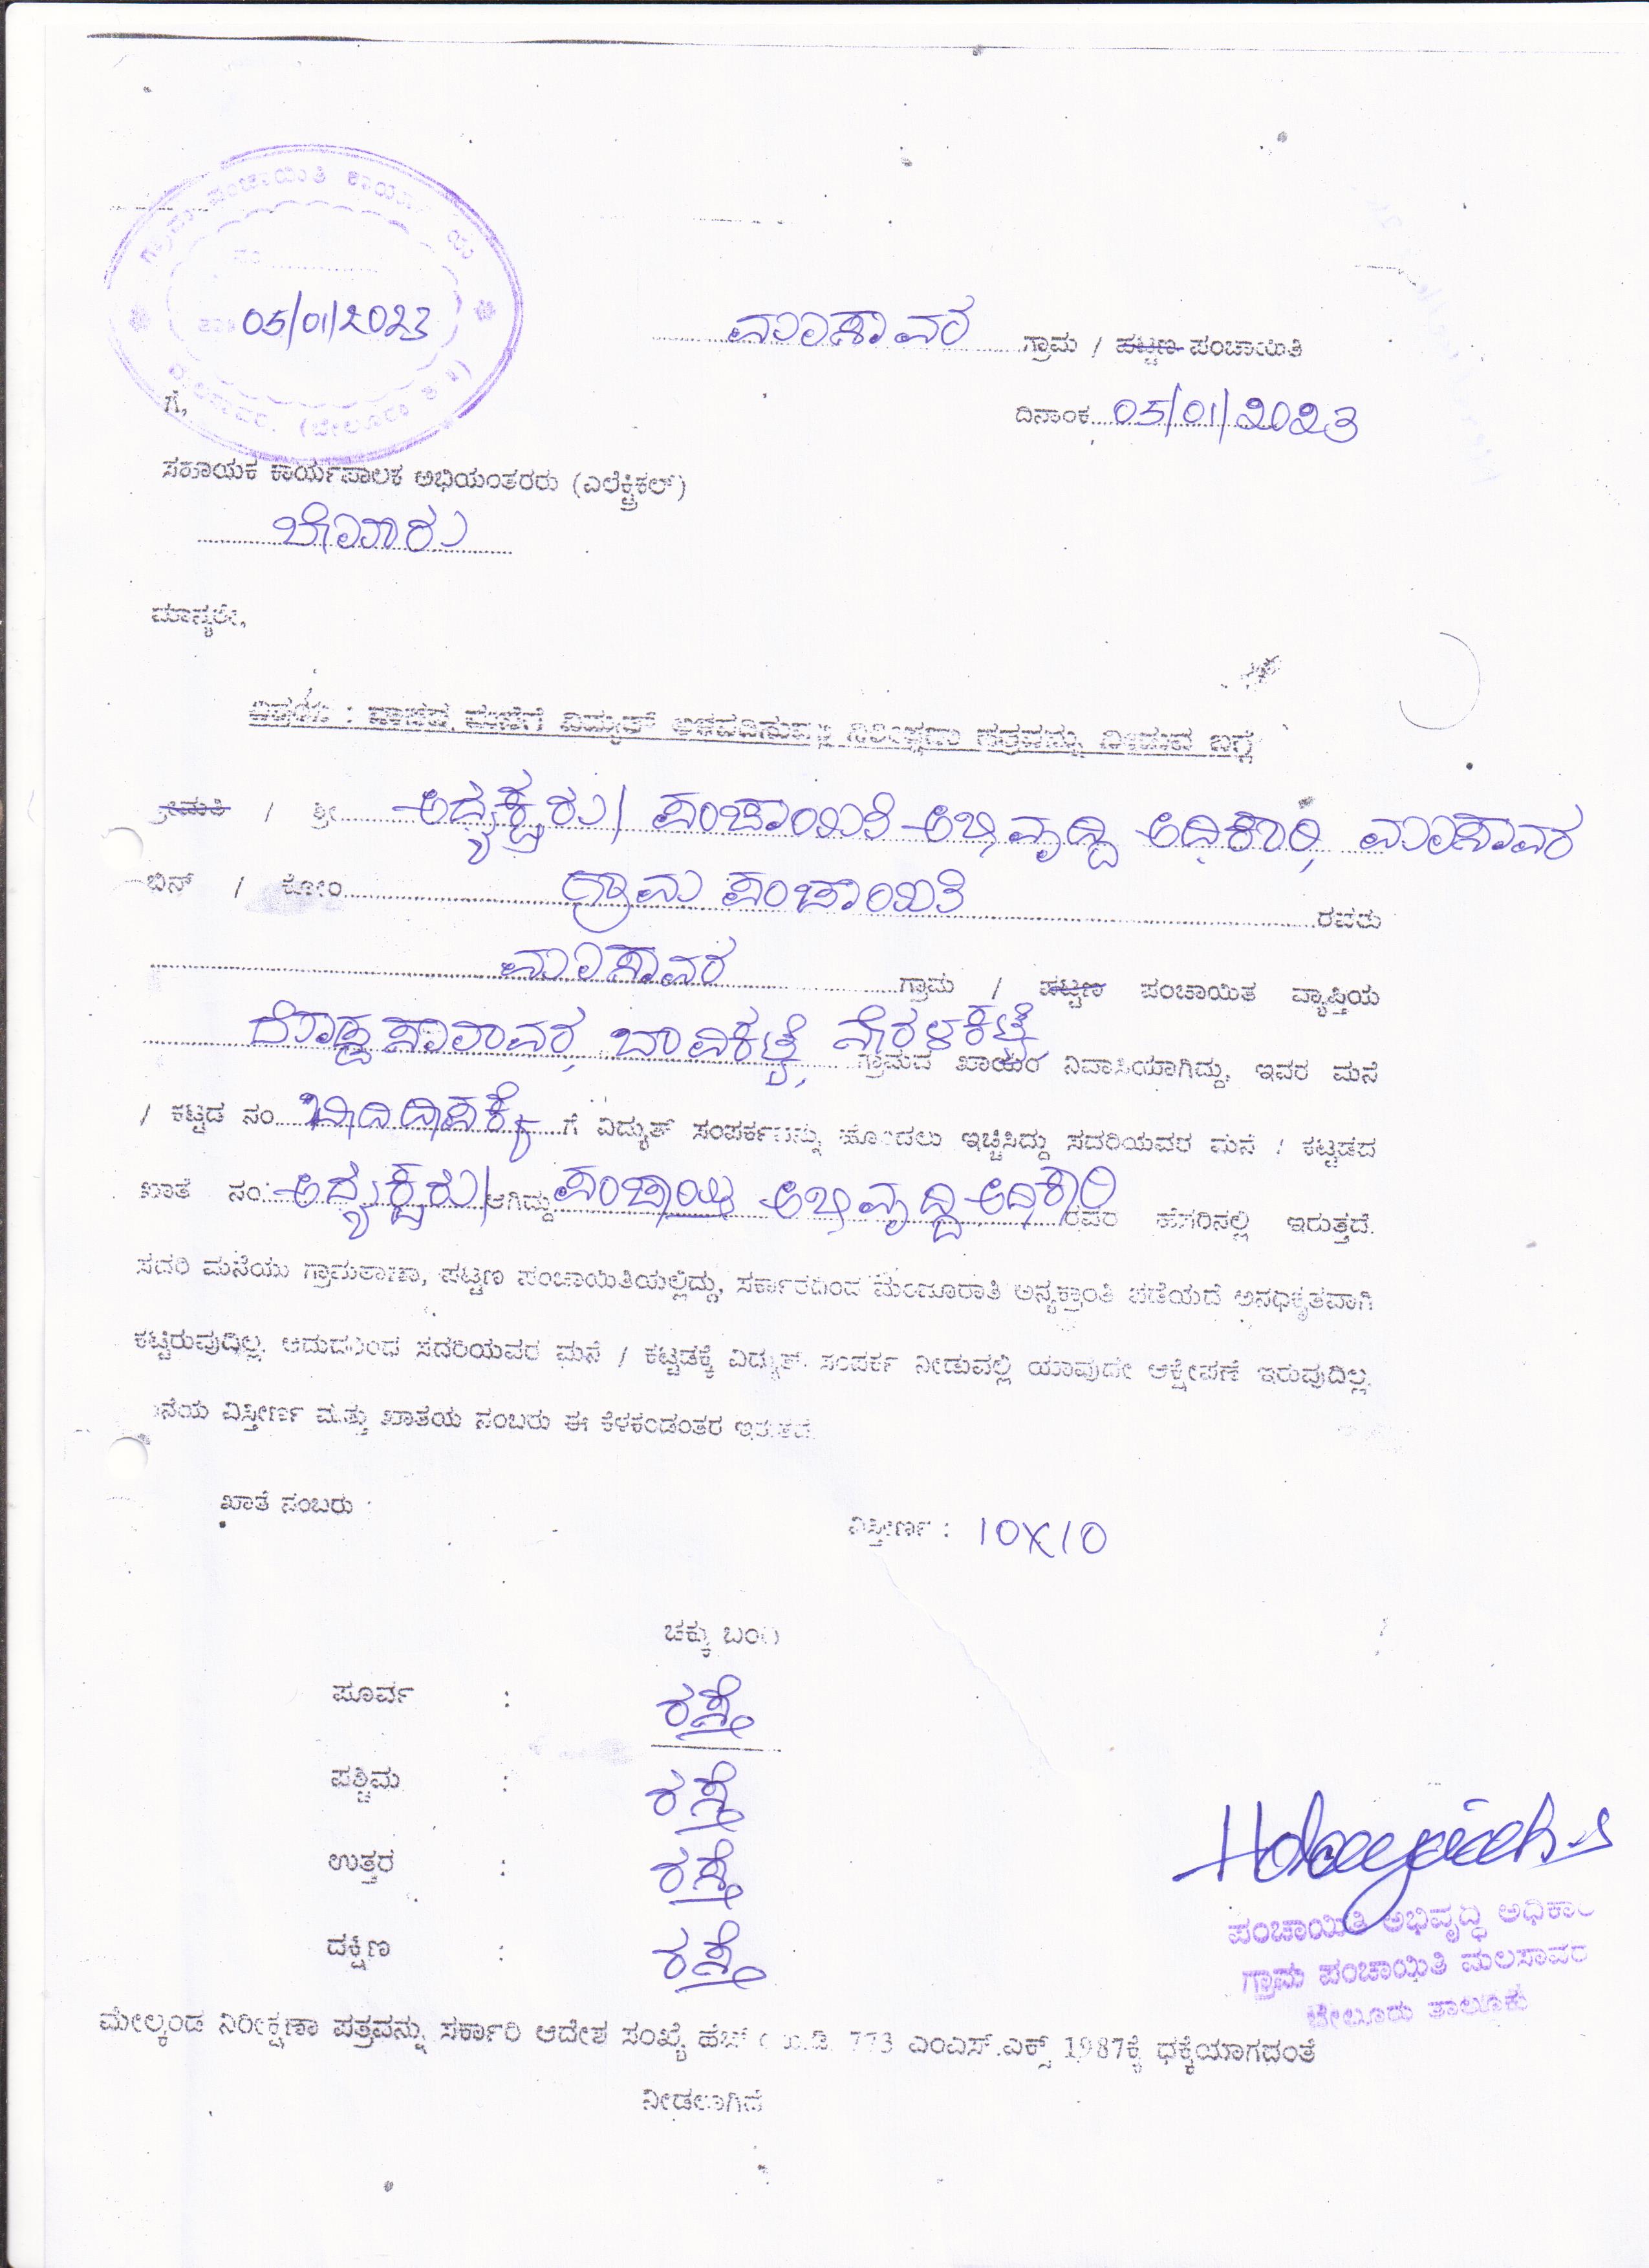 ಗ್ರಾಮ ಪಂಚಾಯಿತಿ
ನಂ
05/01/2023
ಮಲಸಾವರ. (ಬೇಲೂರು
ಮಲಸಾವರ ಗ್ರಾಮ / ಪಟ್ಟಣ ಪಂಚಾಯಿತಿ
ಗೆ,
ದಿನಾಂಕ 05/01/2023
ಸಹಾಯಕ ಕಾರ್ಯಪಾಲಕ ಅಭಿಯಂತರರು (ಎಲೆಕ್ಟ್ರಿಕಲ್)
ಬೇಲೂರು
ಮಾನ್ಯರೇ,
ವಿಷಯ : ವಾಸದ ಮನೆಗೆ ವಿದ್ಯುತ್ ಅಳವಡಿಸುವ ನಿರೀಕ್ಷಣಾ ಪತ್ರವನ್ನು ನೀಡುವ ಬಗ್ಗೆ
ಶ್ರೀಮತಿ / ಶ್ರೀ ಅಧ್ಯಕ್ಷರು/ ಪಂಚಾಯಿತಿ ಅಭಿವೃದ್ಧಿ ಅಧಿಕಾರಿ, ಮಲಸಾವರ
ಬಿನ್ / ಕೋಂ ಗ್ರಾಮ ಪಂಚಾಯಿತಿ ರವರು
ಮಲಸಾವರ ಗ್ರಾಮ / ಪಟ್ಟಣ ಪಂಚಾಯಿತ ವ್ಯಾಪ್ತಿಯ
ದೊಡ್ಡಸಾಲಾವರ, ಬಾವಿಕಟ್ಟೆ, ನೇರಳಕಟ್ಟೆ ಗ್ರಾಮದ ಖಾಯಂ ನಿವಾಸಿಯಾಗಿದ್ದು, ಇವರ ಮನೆ
/ ಕಟ್ಟಡ ನಂ ಬೀದಿ ದೀಪಕ್ಕೆ ಗೆ ವಿದ್ಯುತ್ ಸಂಪರ್ಕವನ್ನು ಹೊಂದಲು ಇಚ್ಚಿಸಿದ್ದು ಸದರಿಯವರ ಮನೆ / ಕಟ್ಟಡದ
ಖಾತೆ ನಂ: ಅಧ್ಯಕ್ಷರು/ ಆಗಿದ್ದು ಪಂಚಾಯ್ತಿ ಅಭಿವೃದ್ಧಿ ಅಧಿಕಾರಿ ರವರ ಹೆಸರಿನಲ್ಲಿ ಇರುತ್ತದೆ.
ಸದರಿ ಮನೆಯು ಗ್ರಾಮಠಾಣಾ, ಪಟ್ಟಣ ಪಂಚಾಯಿತಿಯಲ್ಲಿದ್ದು, ಸರ್ಕಾರದಿಂದ ಮಂಜೂರಾತಿ ಅನ್ಯಕ್ರಾಂತಿ ಪಡೆಯದೆ ಅನಧಿಕೃತವಾಗಿ
ಕಟ್ಟಿರುವುದಿಲ್ಲ. ಆದುದರಿಂದ ಸದರಿಯವರ ಮನೆ / ಕಟ್ಟಡಕ್ಕೆ ವಿದ್ಯುತ್ ಸಂಪರ್ಕ ನೀಡುವಲ್ಲಿ ಯಾವುದೇ ಆಕ್ಷೇಪಣೆ ಇರುವುದಿಲ್ಲ.
ನೆಯ ವಿಸ್ತೀರ್ಣ ಮತ್ತು ಖಾತೆಯ ನಂಬರು ಈ ಕೆಳಕಂಡಂತರ ಇರುತ್ತದೆ.
ಖಾತೆ ನಂಬರು :
ವಿಸ್ತೀರ್ಣ : 10X10
ಚಕ್ಕು ಬಂದಿ
ಪೂರ್ವ : ರಸ್ತೆ
ಪಶ್ಚಿಮ : ರಸ್ತೆ
ಉತ್ತರ : ರಸ್ತೆ
ದಕ್ಷಿಣ : ರಸ್ತೆ
ಪಂಚಾಯಿತಿ ಅಭಿವೃದ್ಧಿ ಅಧಿಕಾರಿ
ಗ್ರಾಮ ಪಂಚಾಯಿತಿ ಮಲಸಾವರ
ಬೇಲೂರು ತಾಲೂಕು
ಮೇಲ್ಕಂಡ ನಿರೀಕ್ಷಣಾ ಪತ್ರವನ್ನು ಸರ್ಕಾರಿ ಆದೇಶ ಸಂಖ್ಯೆ ಹೆಚ್ 773 ಎಂಎಸ್.ಎಕ್ಸ್ 1987ಕ್ಕೆ ಧಕ್ಕೆಯಾಗದಂತೆ
ನೀಡಲಾಗಿದೆ